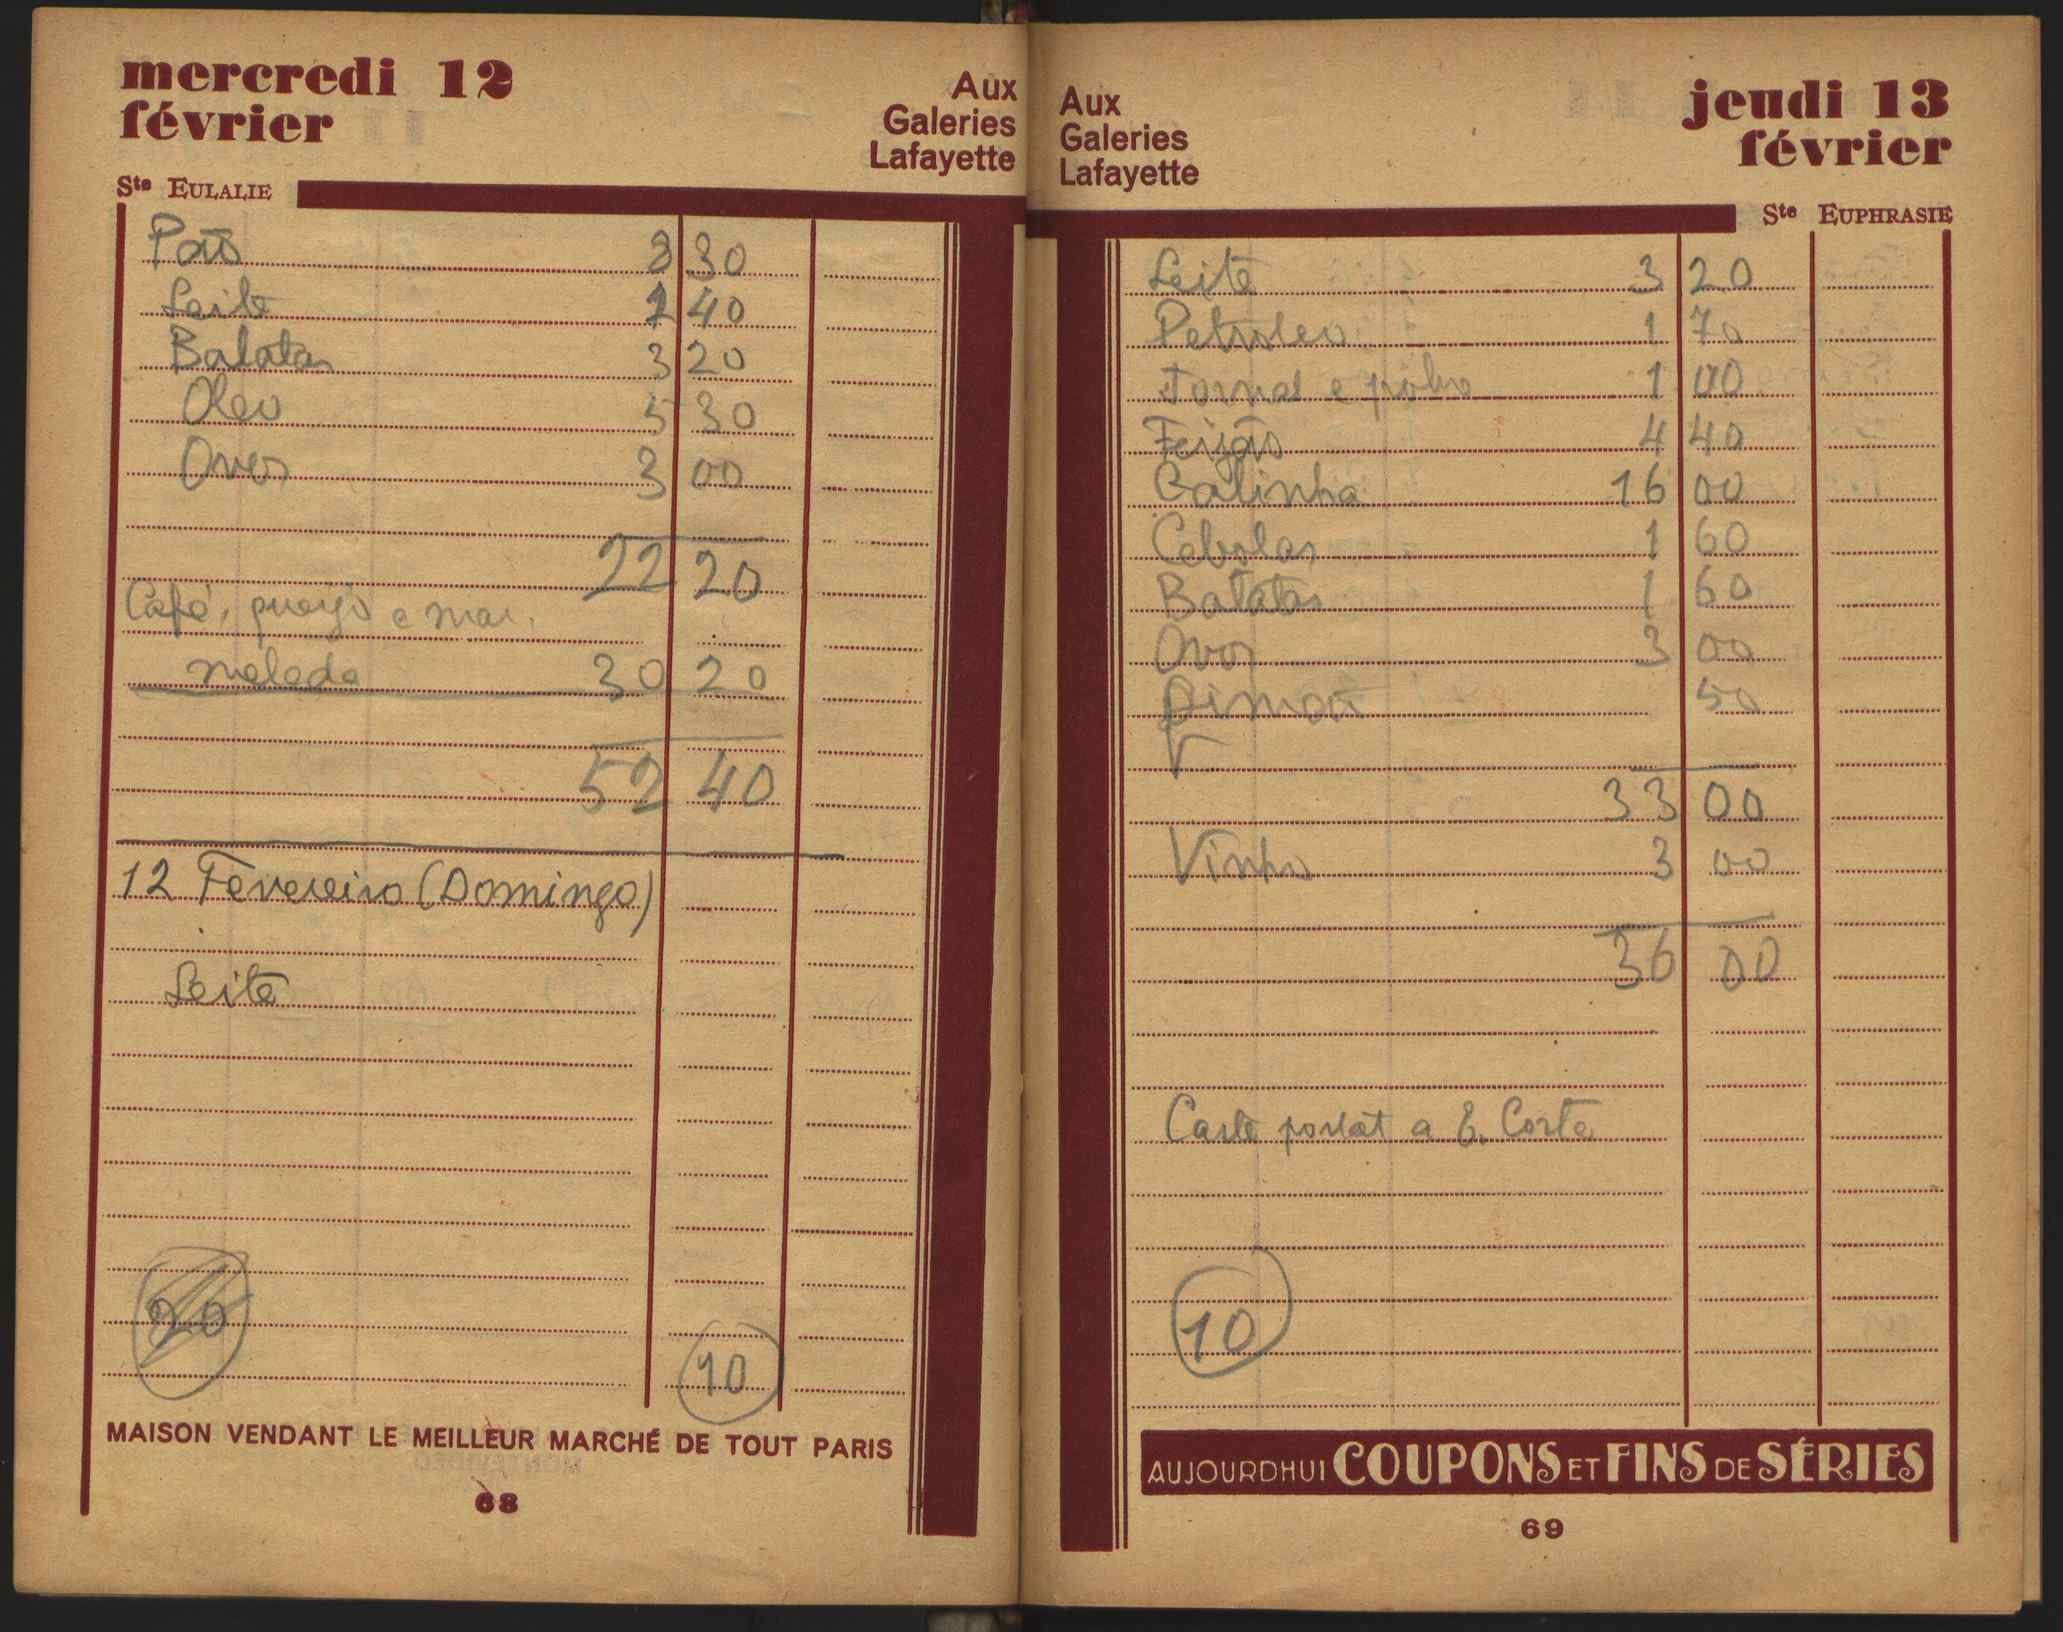 mercredi 12
février
Aux
Galeries
Lafayette
Ste EULALIE
Pão 8 30
Leite 2 40
Batatas 3 20
Oleo 5 30
Ovos 3 00
22 20
Café, queijo e mar.
melada 30 20
52 40
12 Fevereiro (Domingo)
Leite
20
10
MAISON VENDANT LE MEILLEUR MARCHÉ DE TOUT PARIS
68
Aux
Galeries
Lafayette
jeudi 13
février
Ste EUPHRASIE
Leite 3 20
Petroleo 1 70
Jornal e 1 00
Feijão 4 40
Galinha 16 00
Cebolas 1 60
Batatas 1 60
Ovos 3 00
50
33 00
Vinho 3 00
36 00
Carte postal a E. Corte
10
AUJOURDHUI COUPONS ET FINS DE SÉRIES
69